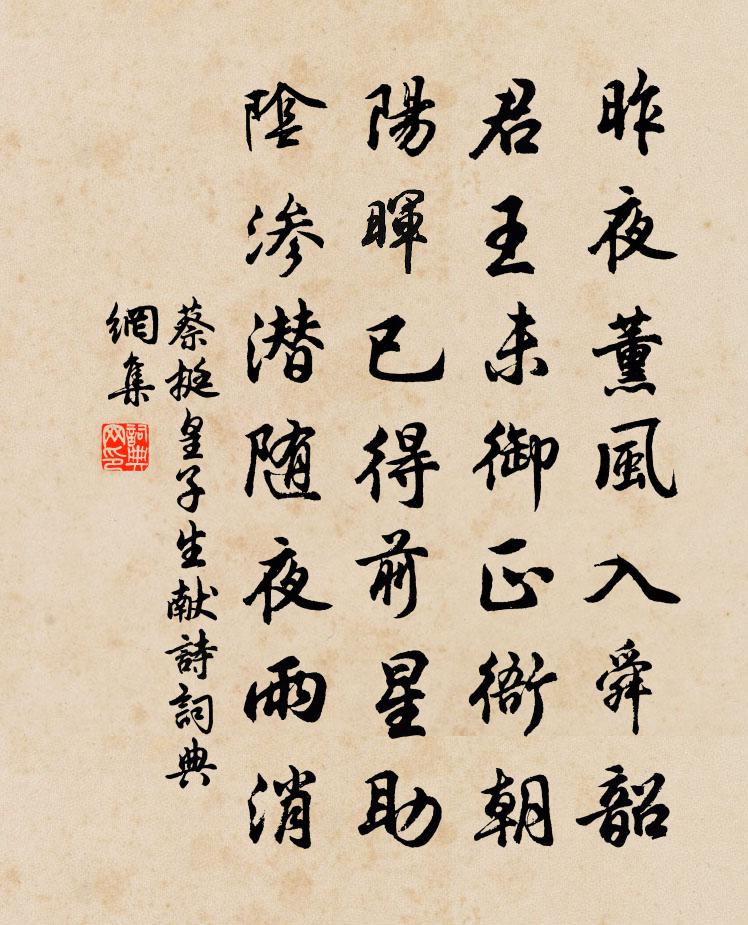 昨夜薰風入舜韶
君王未御正衙朝
陽暉已得前星助
陰渗潜随夜雨消
蔡挺皇子生献詩詞典
網集
詞典
网印